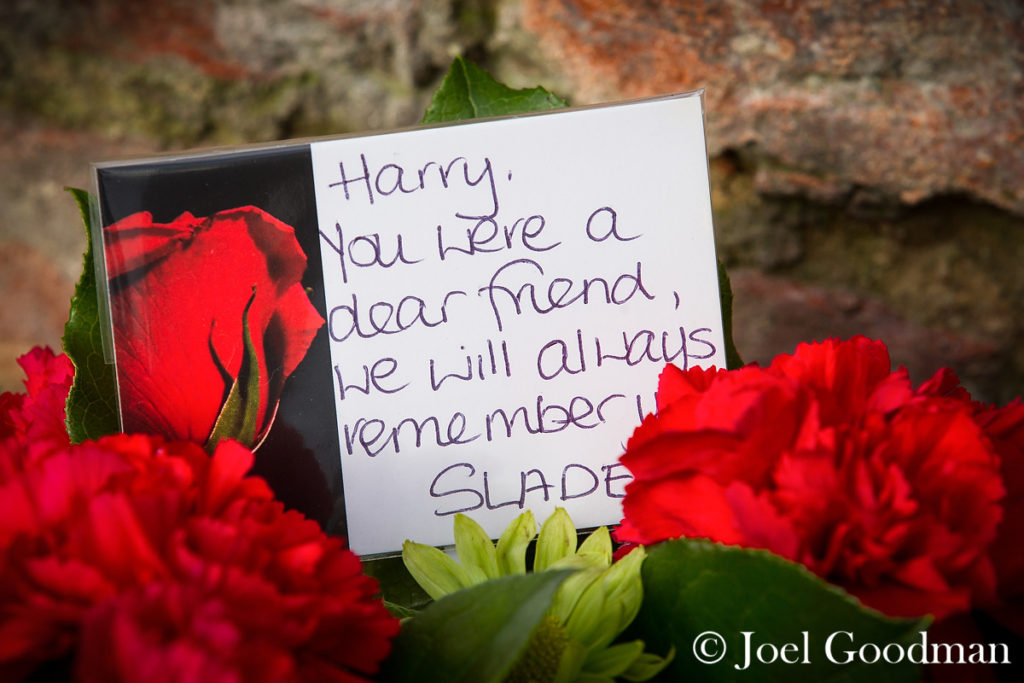 Harry.
You were a
dear friend,
we will always
remember
SLADE
© Joel Goodman